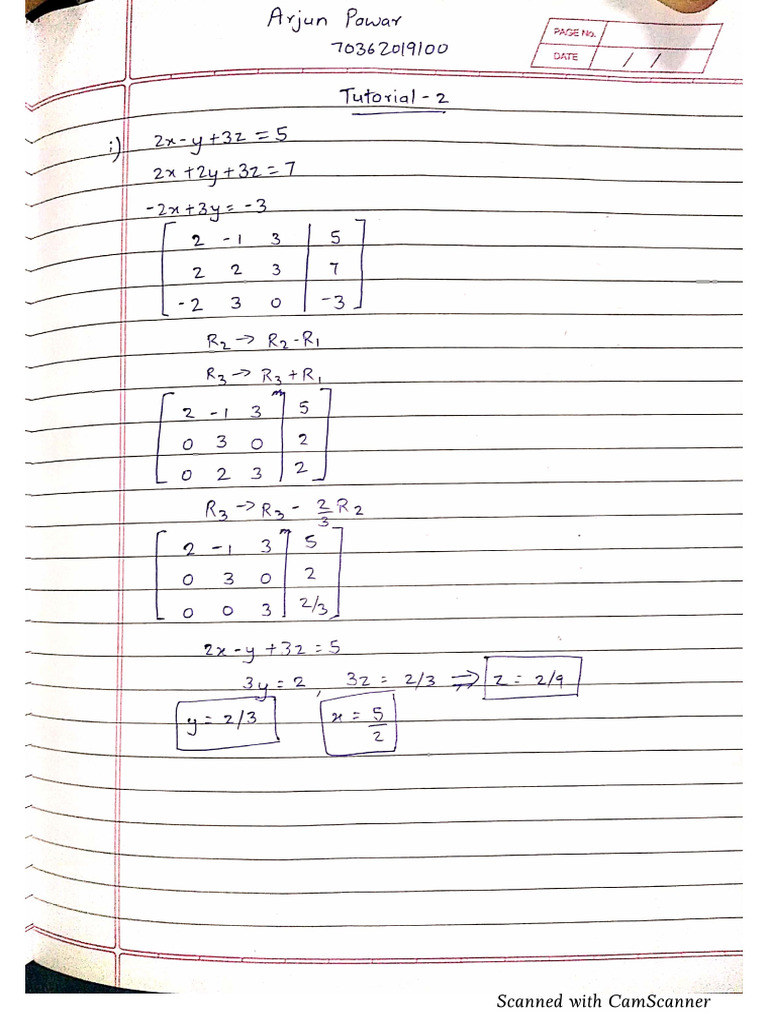 Arjun Powar
70362019100
PAGE No.
DATE / /
Tutorial - 2
i) 2x - y + 3z = 5
2x + 2y + 3z = 7
-2x + 3y = -3
[ 2 -1 3 | 5 ]
[ 2 2 3 | 7 ]
[ -2 3 0 | -3 ]
R2 → R2 - R1
R3 → R3 + R1
[ 2 -1 3 | 5 ]
[ 0 3 0 | 2 ]
[ 0 2 3 | 2 ]
R3 → R3 - 2/3 R2
[ 2 -1 3 | 5 ]
[ 0 3 0 | 2 ]
[ 0 0 3 | 2/3 ]
2x - y + 3z = 5
3y = 2 , 3z = 2/3 ⇒ z = 2/9
y = 2/3 x = 5/2
Scanned with CamScanner